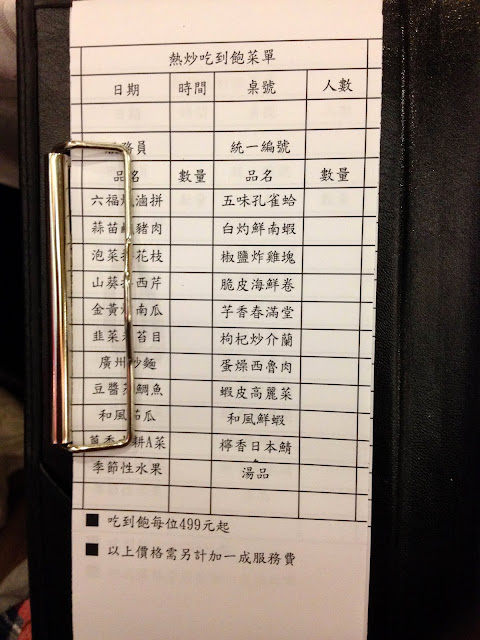 熱炒吃到飽菜單
日期 時間 桌號 人數
務員 統一編號
品名 數量 品名 數量
六福滷拼 五味孔雀蛤
蒜苗豬肉 白灼鮮南蝦
泡菜花枝 椒鹽炸雞塊
山葵西芹 脆皮海鮮卷
金黃南瓜 芋香春滿堂
韭菜苔目 枸杞炒介蘭
廣州炒麵 蛋燥西魯肉
豆醬鯛魚 蝦皮高麗菜
和風茄瓜 和風鮮蝦
香耕A菜 檸香日本鯖
季節性水果 湯品
■ 吃到飽每位499元起
■ 以上價格需另計加一成服務費